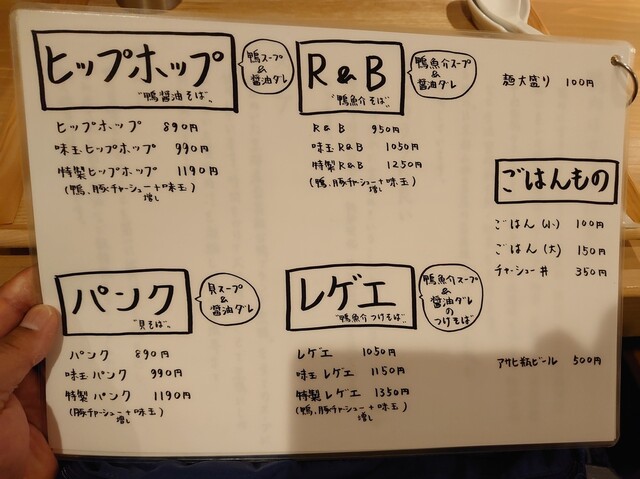 ヒップホップ
"鴨醤油そば"
鴨スープ
&
醤油ダレ
ヒップホップ 890円
味玉ヒップホップ 990円
特製ヒップホップ 1190円
(鴨、豚チャーシュー+味玉)
増し
R&B
"鴨魚介そば"
鴨魚介スープ
&
醤油ダレ
R&B 950円
味玉R&B 1050円
特製R&B 1250円
(鴨、豚チャーシュー+味玉)
増し
麺大盛り 100円
ごはんもの
ごはん(小) 100円
ごはん(大) 150円
チャーシュー丼 350円
パンク
"貝そば"
貝スープ
&
醤油ダレ
パンク 890円
味玉パンク 990円
特製パンク 1190円
(豚チャーシュー+味玉)
増し
レゲエ
"鴨魚介つけそば"
鴨魚介スープ
&
醤油ダレ
の
つけそば
レゲエ 1050円
味玉レゲエ 1150円
特製レゲエ 1350円
(鴨、豚チャーシュー+味玉)
増し
アサヒ瓶ビール 500円